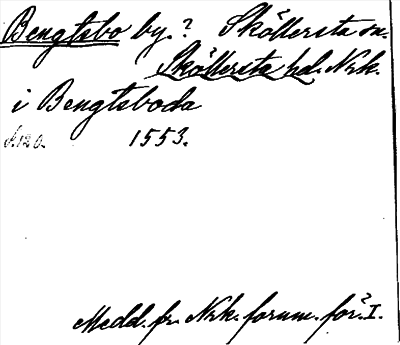 Bengtsbo by.? Sköllersta sn.
Sköllersta hd. Nrk.
i Bengtsboda
s. 120. 1553.
Medd. fr. Nrk. fornm. för. I.